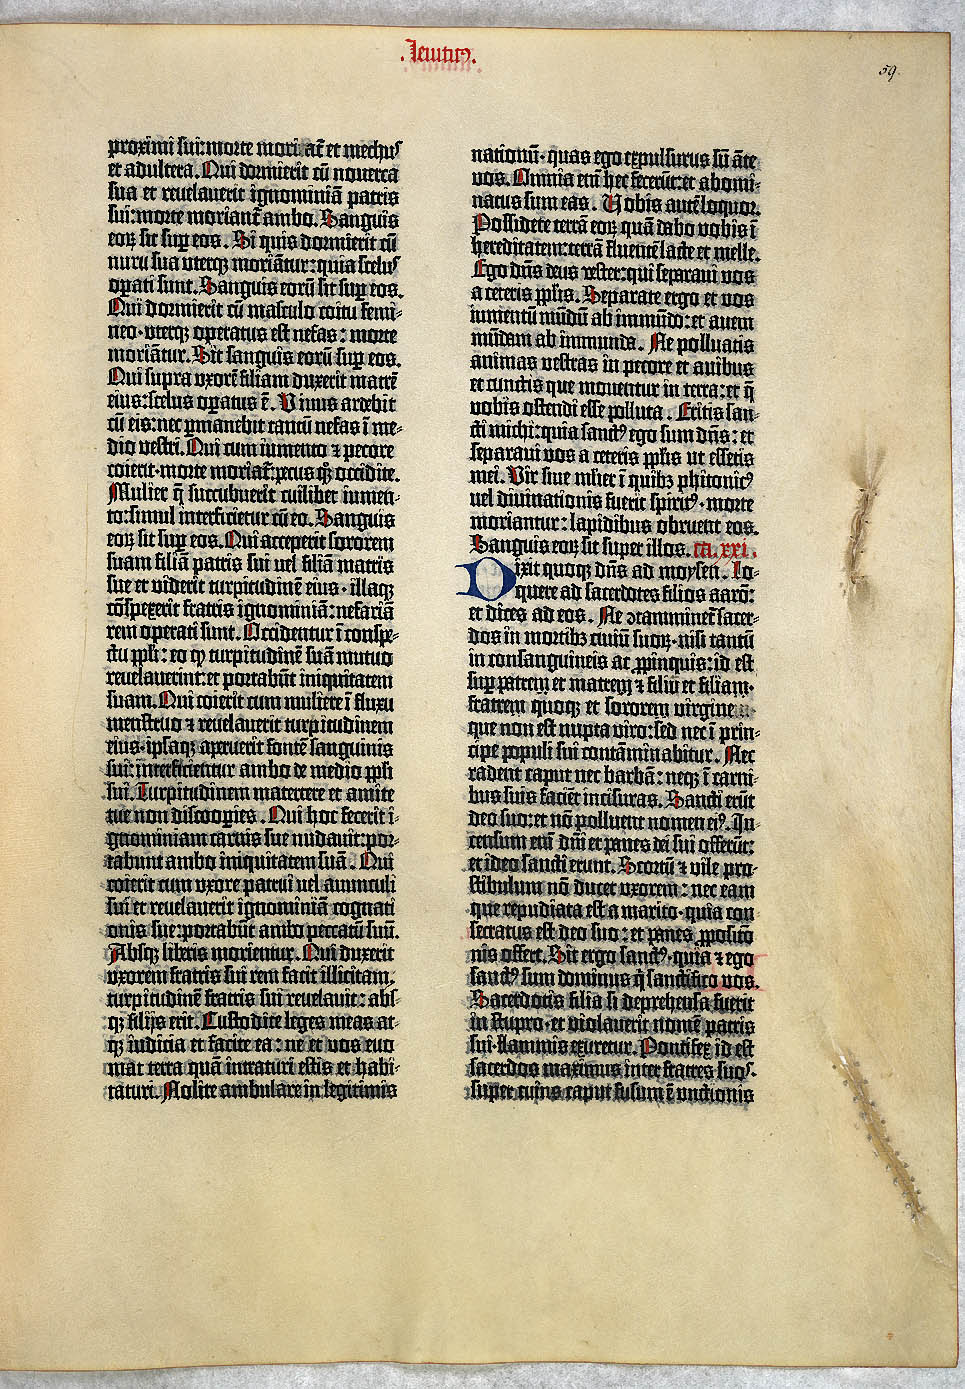 .Leuiticꝰ.
59.
proximi sui: morte moriat̃ et mechuſ
et adultera. Qui dormierit cū nouerca
sua et reuelauerit ignominiā patris
sui: morte moriant̃ ambo. Sanguis
eoꝝ sit suꝑ eos. Si quis dormierit cū
nuru sua uterqꝫ moriātur: quia scelus
oꝑati sunt. Sanguis eorū sit suꝑ eos.
Qui dormierit cū masculo coitu femi-
neo· uterqꝫ operatus est nefas: morte
moriātur. Sit sanguis eorū suꝑ eos.
Qui supra uxorē filiam duxerit matrē
eius: scelus oꝑatus ē. Vivus ardebit
cū eis: nec ꝑmanebit tantū nefas ī me-
dio vestri. Qui cum iumento ⁊ pecore
coierit· morte moriat̃: pecus qꝫ occidite.
Mulier q̄ succubuerit cuilibet iumen-
to: simul interficietur cū eo. Sanguis
eoꝝ sit suꝑ eos. Qui acceperit sororem
suam filiā patris sui uel filiā matris
sue et viderit turpitudinē eius· illaqꝫ
cōspexerit fratris ignominiā: nefariā
rem operati sunt. Occidentur ī conspe-
ctu ꝑpli: eo qꝙ turpitudinē suā mutuo
reuelauerint: et portabūt iniquitatem
suam. Qui coierit cum muliere ī fluxu
menstruo ⁊ reuelauerit turpitudinem
eius· ipsaqꝫ aperuerit fontē sanguinis
sui: interficientur ambo de medio ppli
sui. Turpitudinem matertere et amite
tue non discooꝑies. Qui hoc fecerit i-
gnominiam carnis sue nudauit: por-
tabunt ambo iniquitatem suā. Qui
coierit cum uxore patrui uel auunculi
sui et reuelauerit ignominiā cognati
onis sue: portabūt ambo peccatū suū.
Absqꝫ liberis morientur. Qui duxerit
uxorem fratris sui rem facit illicitam.
turpitudinē fratris sui reuelauit: abs-
qꝫ filijs erit. Custodite leges meas at-
qꝫ iudicia et facite ea: ne et vos euo
mat terra quā intraturi estis et habi-
taturi. Nolite ambulare in legitimis
nationū· quas ego expulsurus sū āte
vos. Omnia eni hec fecerūt: et abomi-
natus sum eas. Vobis autē loquor.
Possidete terrā eoꝝ quā dabo vobis ī
hereditatem: terrā fluentē lacte et melle.
Ego dn̄s deus vester: qui separaui vos
a ceteris pplis. Separate ergo et vos
iumentū mūdū ab immūdo: et auem
mūdam ab immunda. Ne polluatis
animas vestras in pecore et auibus
et cunctis que mouentur in terra: et q̄
vobis ostendi esse polluta. Eritis san-
cti michi: quia sanctꝰ ego sum dn̄s: et
separaui vos a ceteris pplis ut essetis
mei. Vir siue mlier ī quibꝫ phitonicꝰ
uel diuinationis fuerit spiritꝰ· morte
moriantur: lapidibus obruent eos.
Sanguis eoꝝ sit super illos. ca. xxi.
Dixit quoqꝫ dn̄s ad moysen. Lo-
quere ad sacerdotes filios aarō:
et dices ad eos. Ne ꝯtaminet̃ sacer-
dos in mortibꝫ ciuiū suoꝝ· nisi tantū
in consanguineis ac ꝓpinquis: id est
suꝑ patrem et matrem ⁊ filiū et filiam·
fratrem quoqꝫ et sororem virgine
que non est nupta viro: sed nec ī prin-
cipe populi sui contāminabitur. Nec
radent caput nec barbā: neqꝫ ī carni-
bus suis faciēt incisuras. Sancti erūt
deo suo: et nō polluent nomen eiꝰ. In-
censum eni dn̄i et panes dei sui offerūt:
et ideo sancti erunt. Scortū ⁊ vile pro-
stibulum nō ducet uxorem: nec eam
que repudiata est a marito· quia con
secratus est deo suo: et panes ꝓpositō
nis offert. Sit ergo sanctꝰ· quia ⁊ ego
sanctꝰ sum dominus q̄ sanctifico vos.
Sacerdotis filia si deprehensa fuerit
in stupro· et violauerit nomē patris
sui· flammis exuretur. Pontifex id est
sacerdos maximus inter fratres suoſ·
super cuius caput fusum ē unctionis